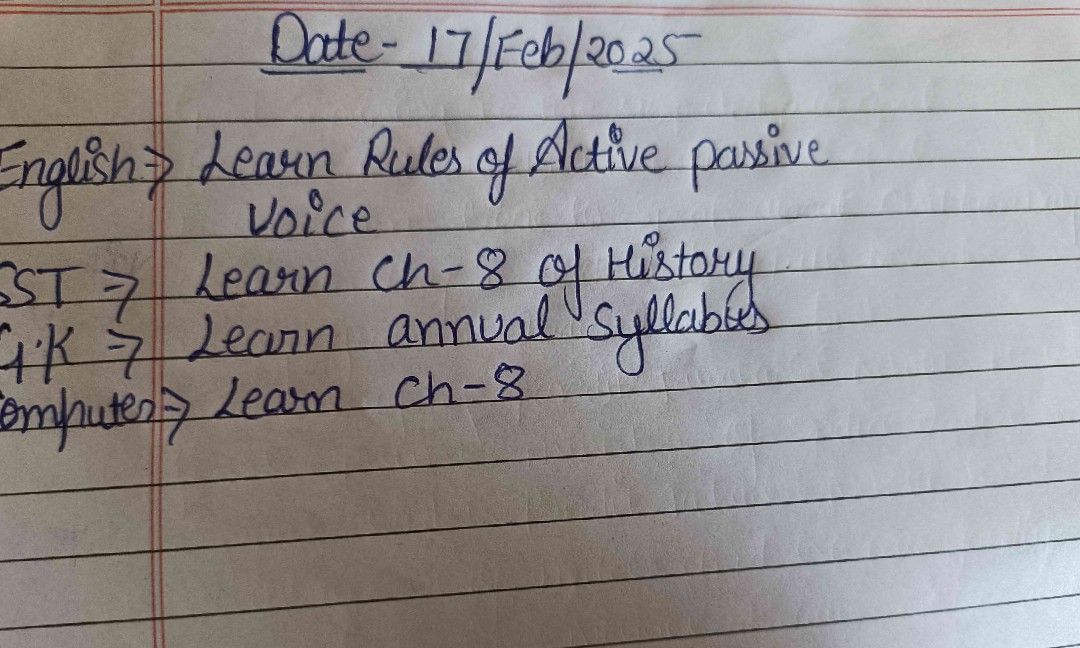 Date- 17/Feb/2025
English⇒ Learn Rules of Active passive
voice
SST ⇒ Learn Ch-8 of History
G.K ⇒ Learn annual Syllabus
Computer⇒ Learn Ch-8